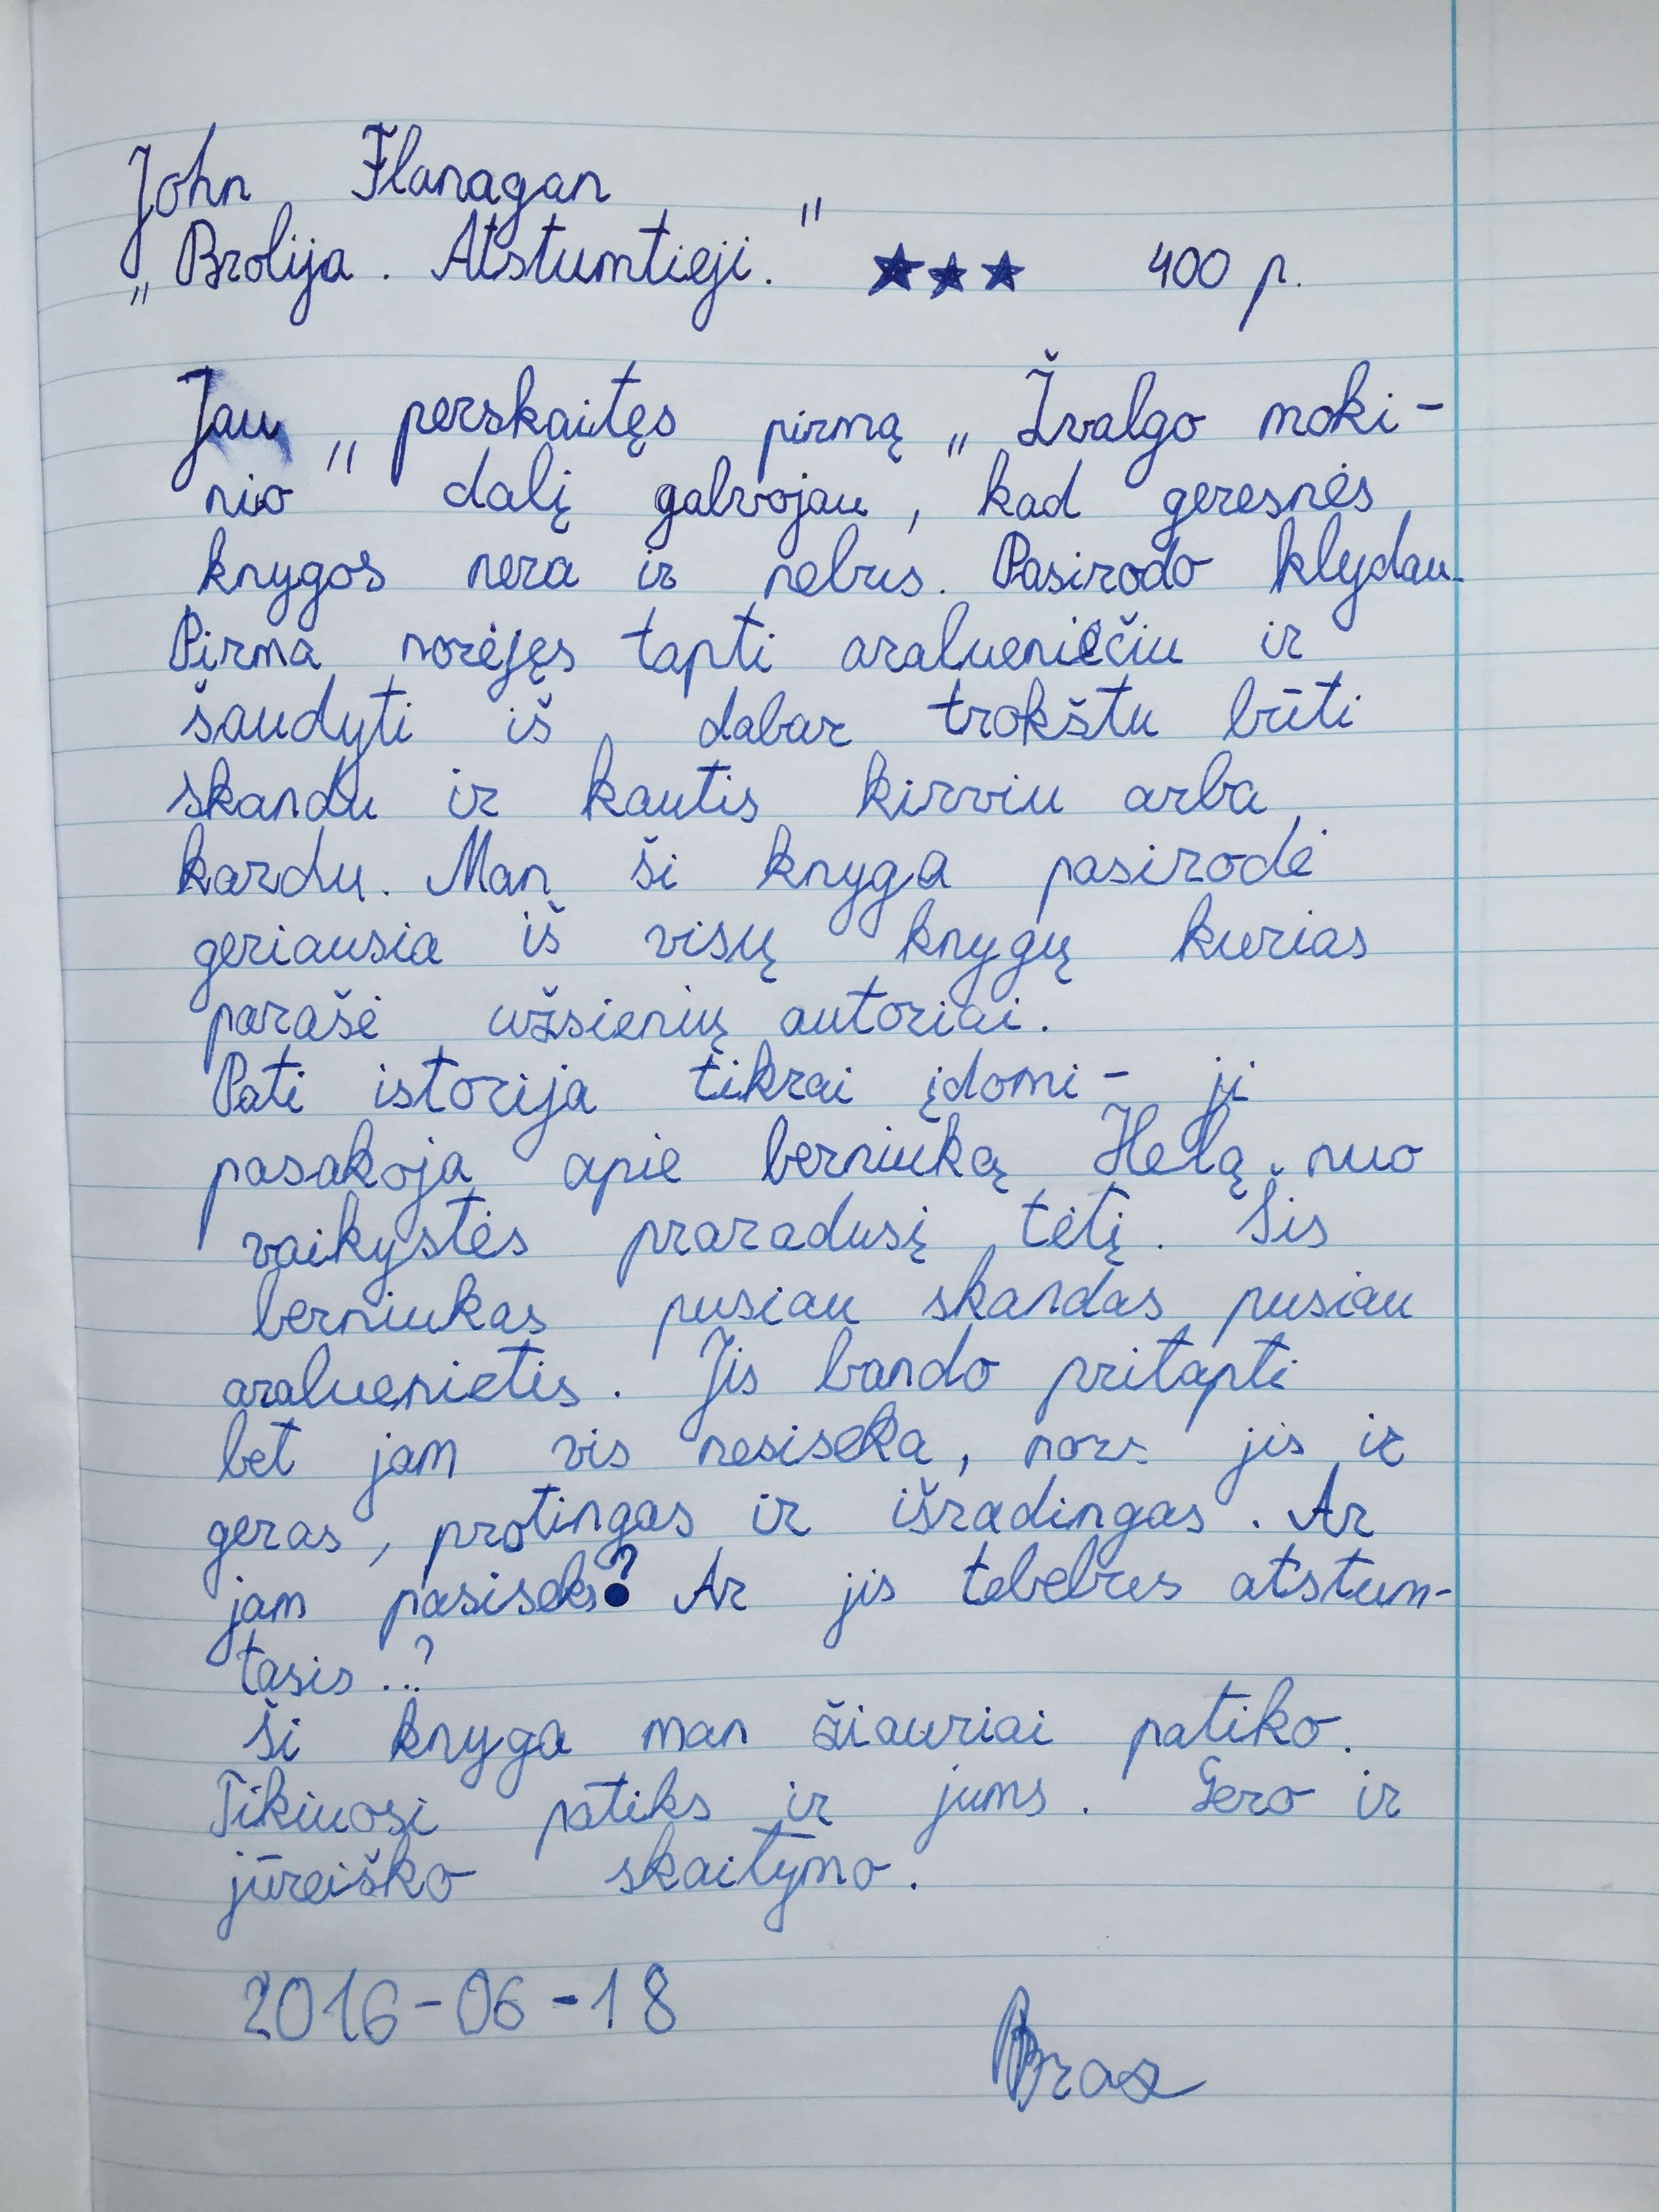 John Flanagan
„Brolija. Atstumtieji." ★★★ 400 p.
Jau perskaitęs pirmą „Žvalgo moki-
nio" dalį galvojau, kad geresnės
knygos nera ir nebus. Pasirodo klydau.
Pirma norėjęs tapti aralueniečiu ir
šaudyti iš, dabar trokštu būti
skandu ir kautis kirviu arba
kardu. Man ši knyga pasirodė
geriausia iš visų knygų kurias
parašė užsienių autoriai.
Pati istorija tikrai įdomi - ji
pasakoja apie berniuką Helą, nuo
vaikystės praradusį tėtį. Šis
berniukas pusiau skandas pusiau
araluenietis. Jis bando pritapti
bet jam vis nesiseka, nors jis ir
geras, protingas ir išradingas. Ar
jam pasiseks? Ar jis tebebus atstum-
tasis..?
Ši knyga man žiauriai patiko.
Tikiuosi patiks ir jums. Gero ir
jūreiško skaitymo.
2016-06-18